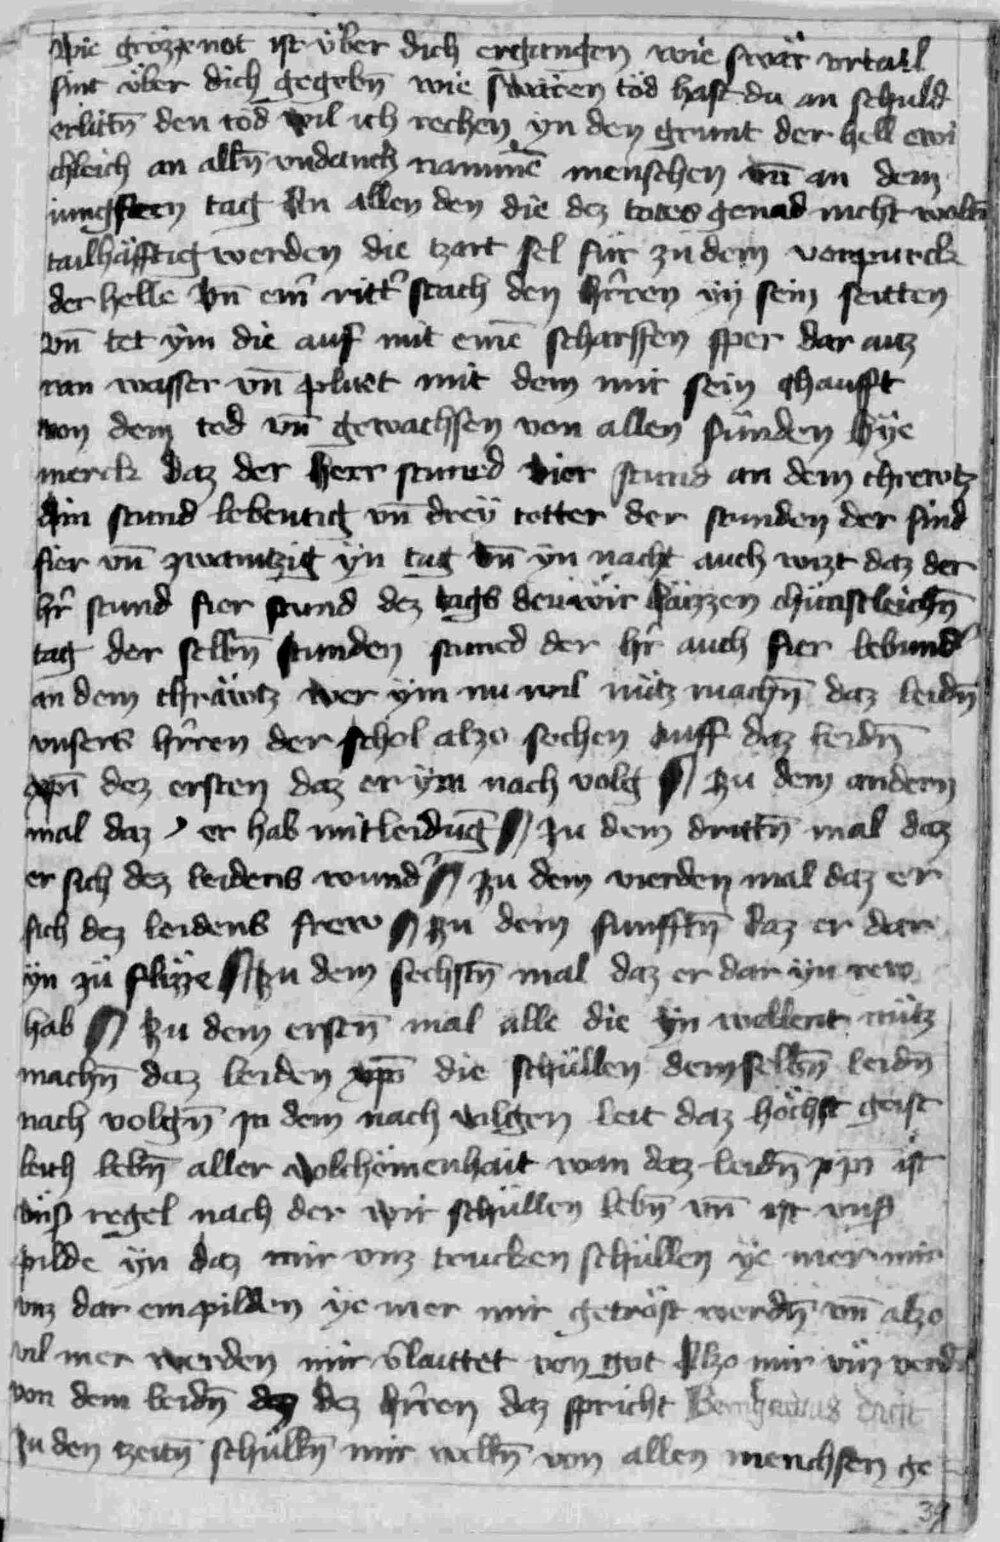 Wie grözze not ist über dich ergangen wie swär vrtail
sint über dich gegebn̄ wie swären töd hast du an schuld
erlitn̄ den töd wil ich rechen yn den grunt der hell ewi
chleich an alln̄ vndanck nammē menschen vn̄ an dem
iungsten tag An allen den die dez todes genad nicht wolln̄
tailhäfftig werden die tzart sel für zu dem vorpurck
der helle Vn̄ ein̄ ritt' stach den hr̄ren yn sein seitten
vn̄ tet ym die auf mit eine scharffen sper dar auz
ran wasser vn̄ pluet mit dem mir sein chaufft
von dem tod vn̄ gewachsen von allen sünden Hye
merck daz der herr stuned vier stund an dem chrewtz
Ain stund lebentig vn̄ drey totter der stunden der sind
fier vn̄ zwantzig yn tag vn̄ yn nacht auch wizt daz der
hr̄ stund fier stund dez tags den wir häizzen chünstleichn̄
tag der selbn̄ stunden stuned der hr̄ auch fier lebund'
an dem chräwtz wer ym nu wil nütz machn̄ daz leidn̄
vnsers hr̄ren der schol alzo sechen auff daz leidn̄
xpī dez ersten daz er ym nach volg zu dem andern
mal daz er hab mitleidūg zu dem dritn̄ mal daz
er sich dez leidens wund' zu dem vierden mal daz er
sich dez leidens frew zu dem funfftn̄ daz er dar
yn zü flizze zu dem sechstn̄ mal daz er dar yn rew
hab zu dem erstn̄ mal alle die yn wellent nütz
machn̄ daz leiden xpī die schüllen demselbn̄ leidn̄
nach volgn̄ in dem nach volgen leit daz höchst geist
leich lebn̄ aller volchömenhait wan daz leidn̄ xpī ist
vnß regel nach der wir schüllen lebn̄ vn̄ ist vnß
pilde yn daz mir vnz trucken schüllen ye mer mir
vnz dar ein pilden ye mer mir getröst werdn̄ vn̄ alzo
vil mer werden mir v̄lauttet von got Alzo mir vnz
von dem leidn̄ dez hr̄ren daz spricht Bernhardus
In den tzeitn̄ schülln̄ mir welln̄ von allen menchsen ge
39